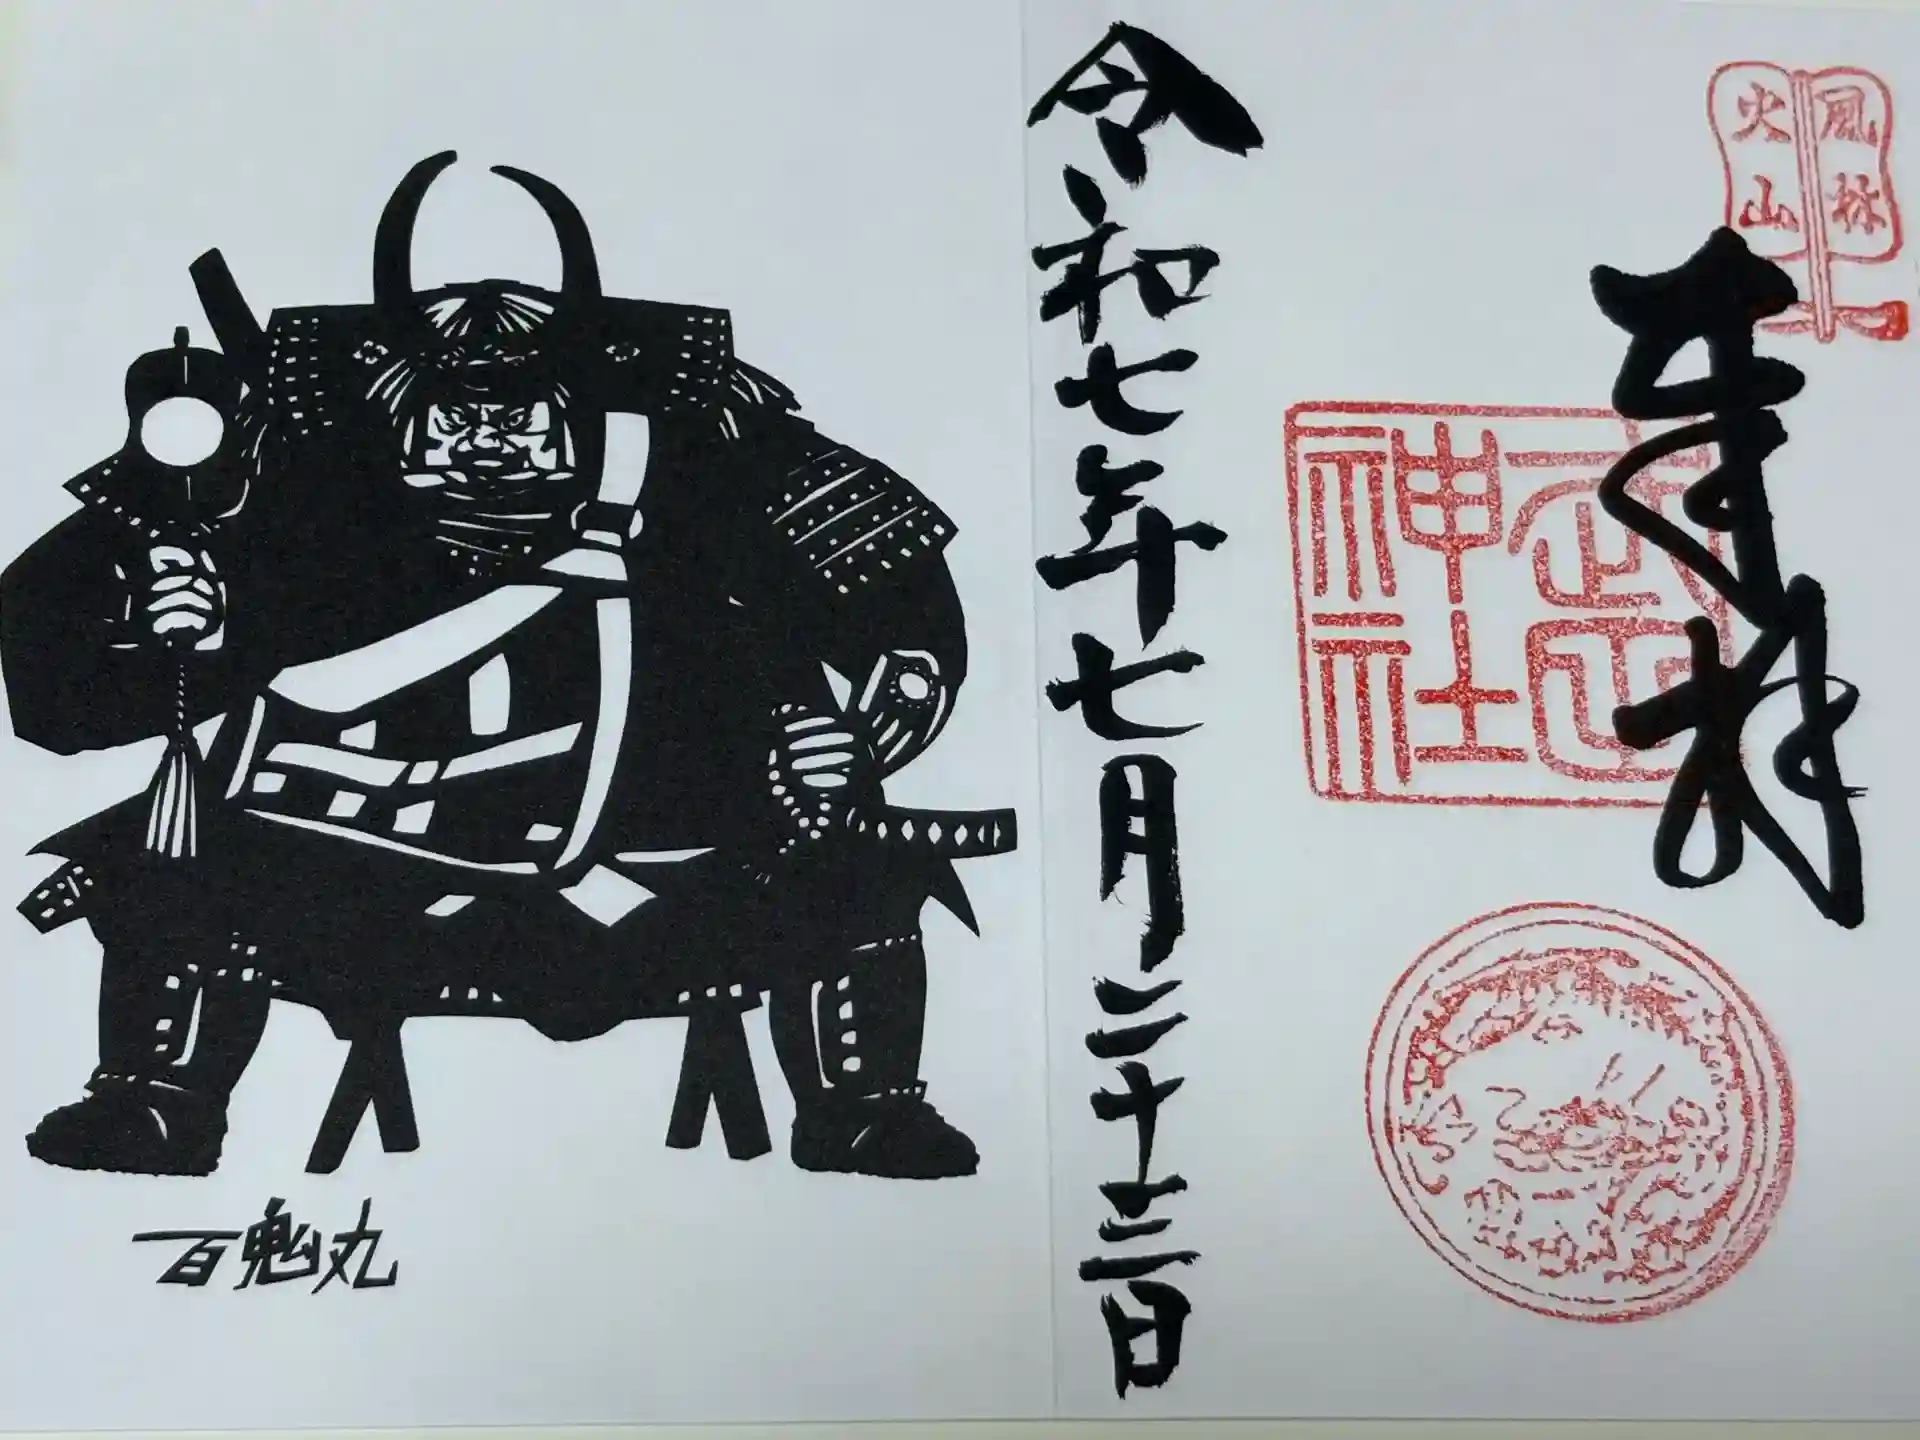 風林
火山
奉拝
武田
神社
令和七年七月二十三日
百鬼丸